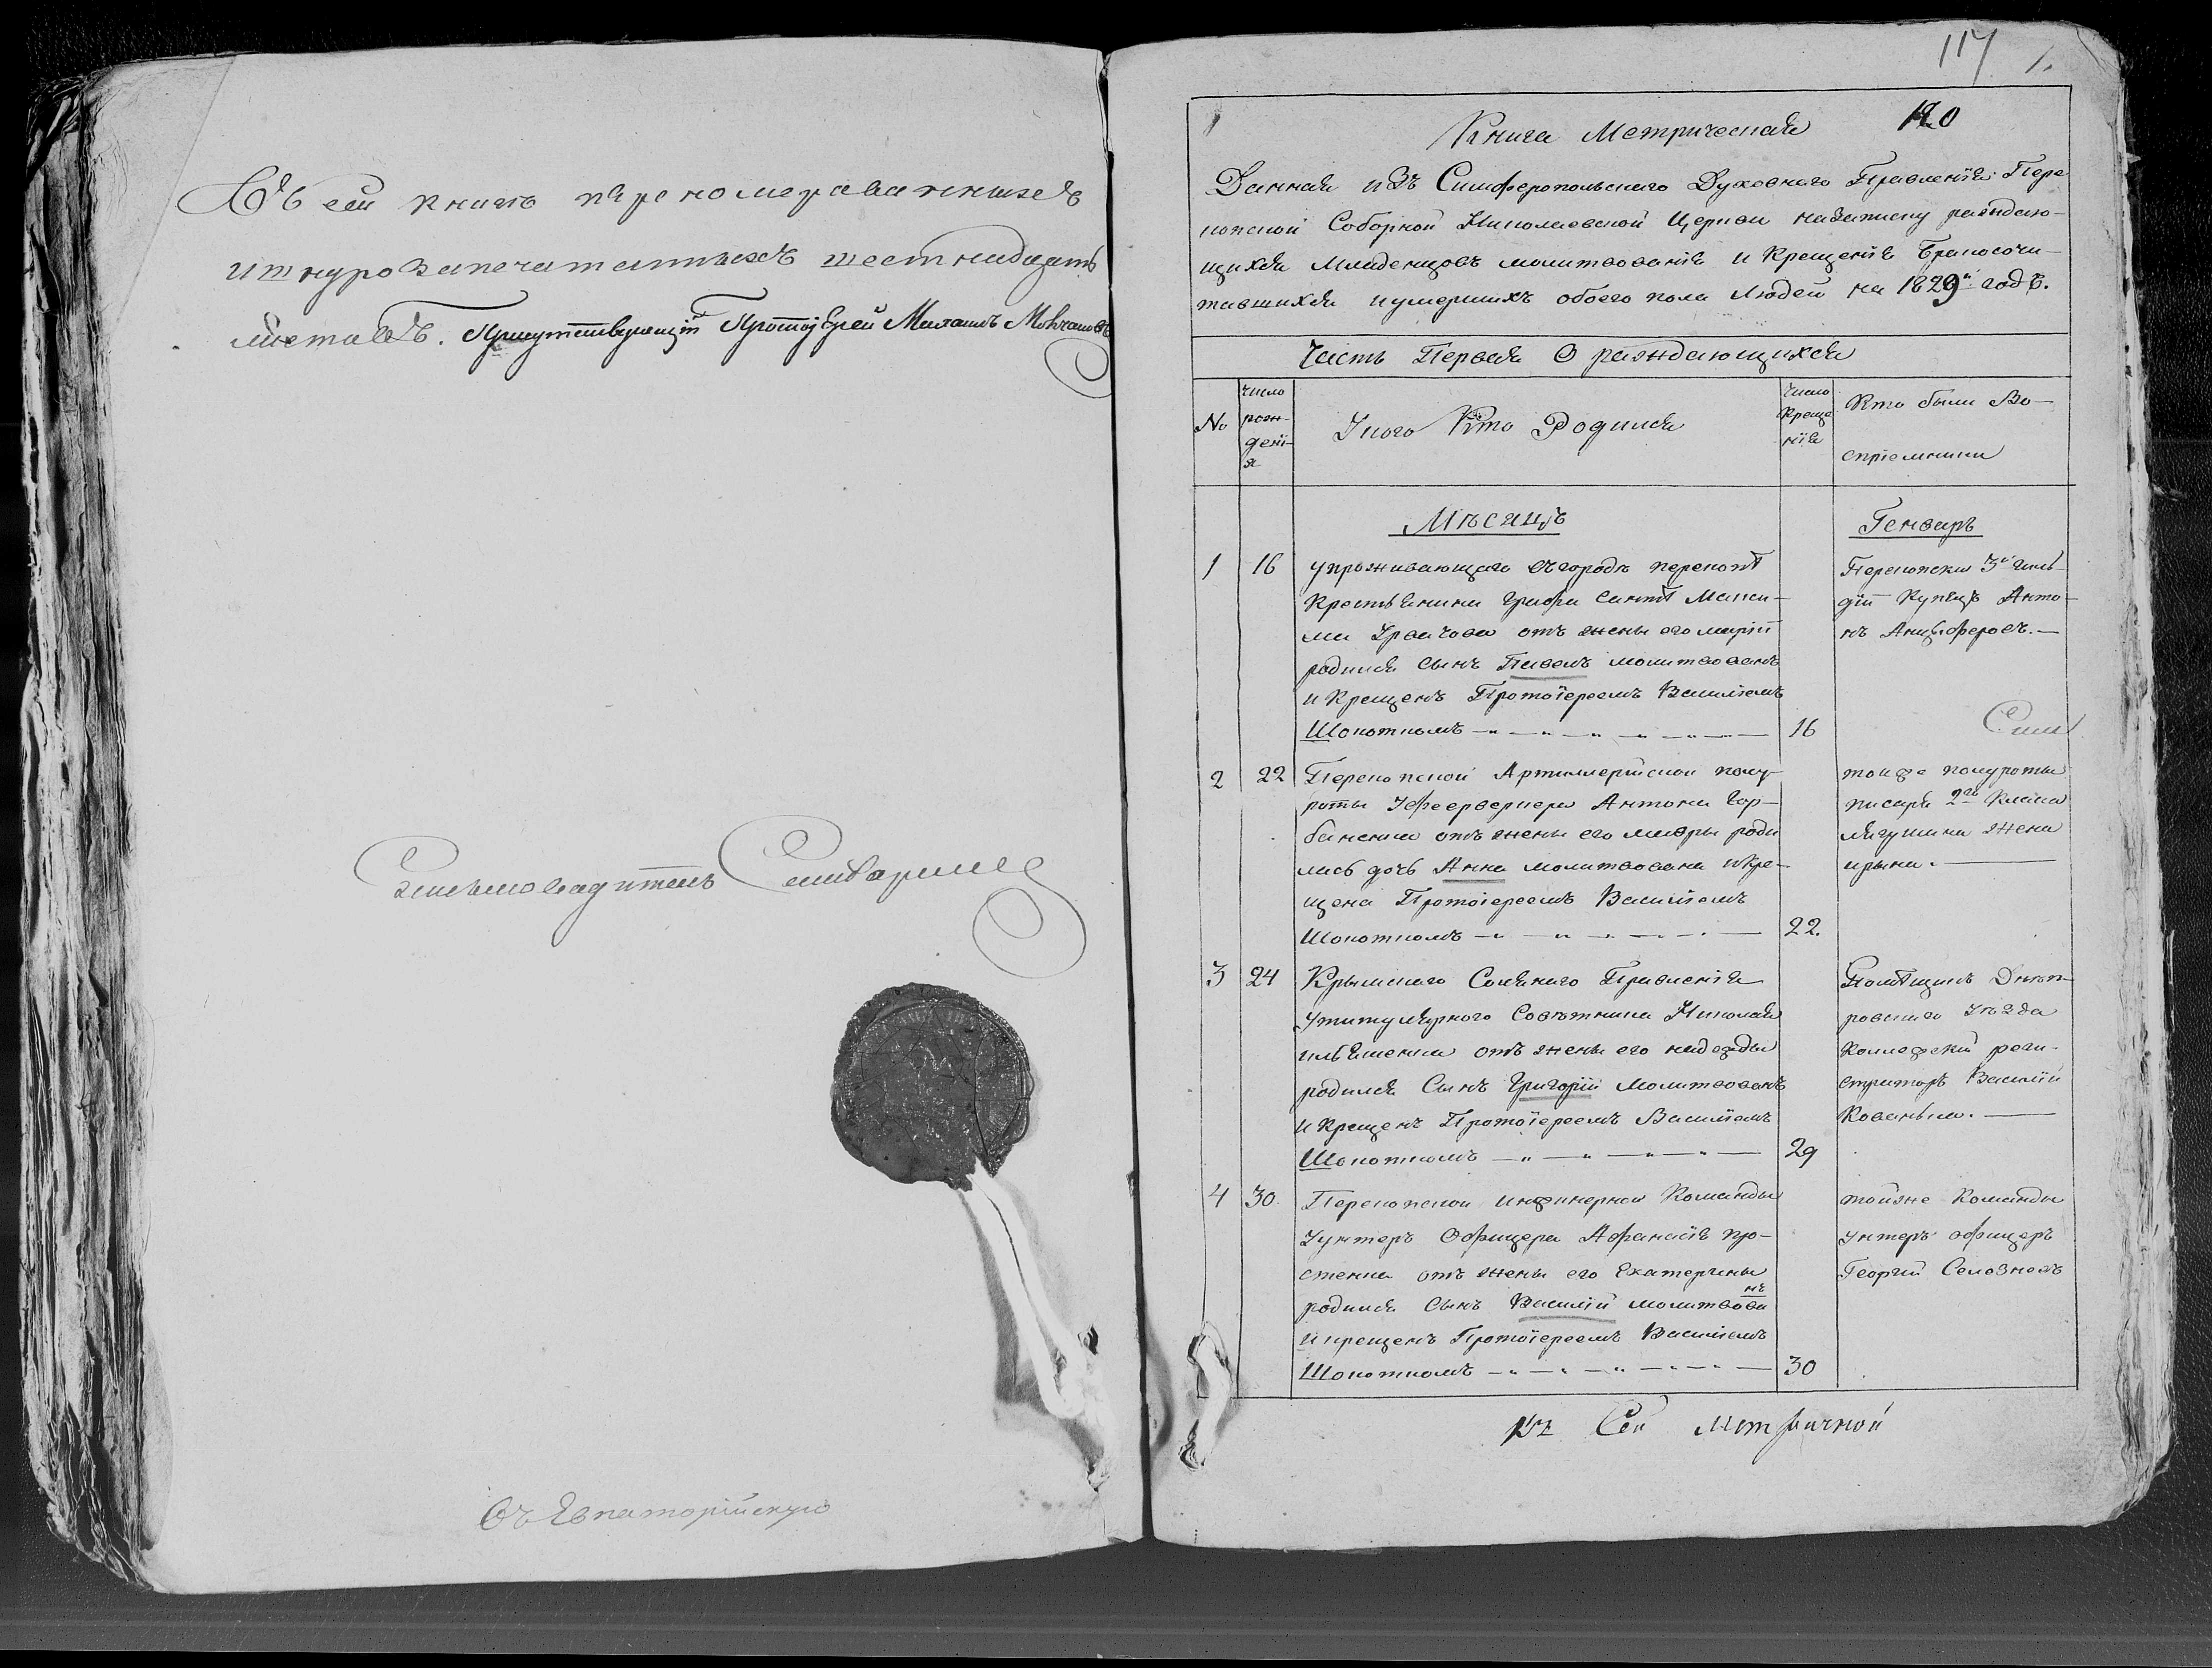 Въ сей книгѣ перенумерованныхъ
и шнурозапечатанныхъ шестнадцать
листовъ. Присутствующій Протоіерей Михаилъ
Письмоводитель
Въ Евпаторійскую
117 1.
120
Книга Метрическая
Данная изъ Симферопольскаго Духовнаго Правленія Пере
копской Соборной Николаевской Церкви на записку раждаю-
щихся Младенцовъ молитвованія и Крещенія Бракосочи-
тавшихся и умершихъ обоего пола Людей на 1829й годъ.
Часть Первая О раждающихся
№
число рож- дені- я
У кого Кто Родился
Число Креще нія
Кто были Во-
спріемники
Мѣсяцъ
Генварь
1 16 у проживающаго въ городѣ перекопѣ
Крестьянина Графа Санти Макси-
ма от жены его маріи
родился сынъ Павелъ молитвованъ
и Крещенъ Протоіереемъ Василіемъ
Шокоткомъ 16
Перекопски 3й Гиль-
діи Купецъ Анто-
нъ Анцыферовъ.
2 22 Перекопской Артиллерійской полу-
роты У Феервернера Антона Гор-
баненка отъ жены его мавры роди
лась дочь Анна молитвована и Кре-
щена Протоіереемъ Василіемъ
Шокоткомъ 22.
той же полуроты
писаря 2го Класа
жена
ирына.
3 24 Крымскаго Солянаго Правленія
У титулярнаго Совѣтника Николая
ильяшенка отъ жены его надежды
родился Сынъ Григорій Молитвованъ
и Крещенъ Протоіереемъ Василіемъ
Шокоткомъ 29
Помѣщикъ Днѣп-
ровскаго Уѣзда
Коллежскій реги-
страторъ Василій
Кованька.
4 30. Перекопской инженерной Команды
У унтеръ Офицера Афанасія про-
стенка отъ жены его Екатерины
родился Сынъ Василій молитвова
нъ
и крещенъ Протоіереемъ Василіемъ
Шокоткомъ 30
той же Команды
унтеръ офицеръ
Георгій Селозневъ
Къ Сей Метричной